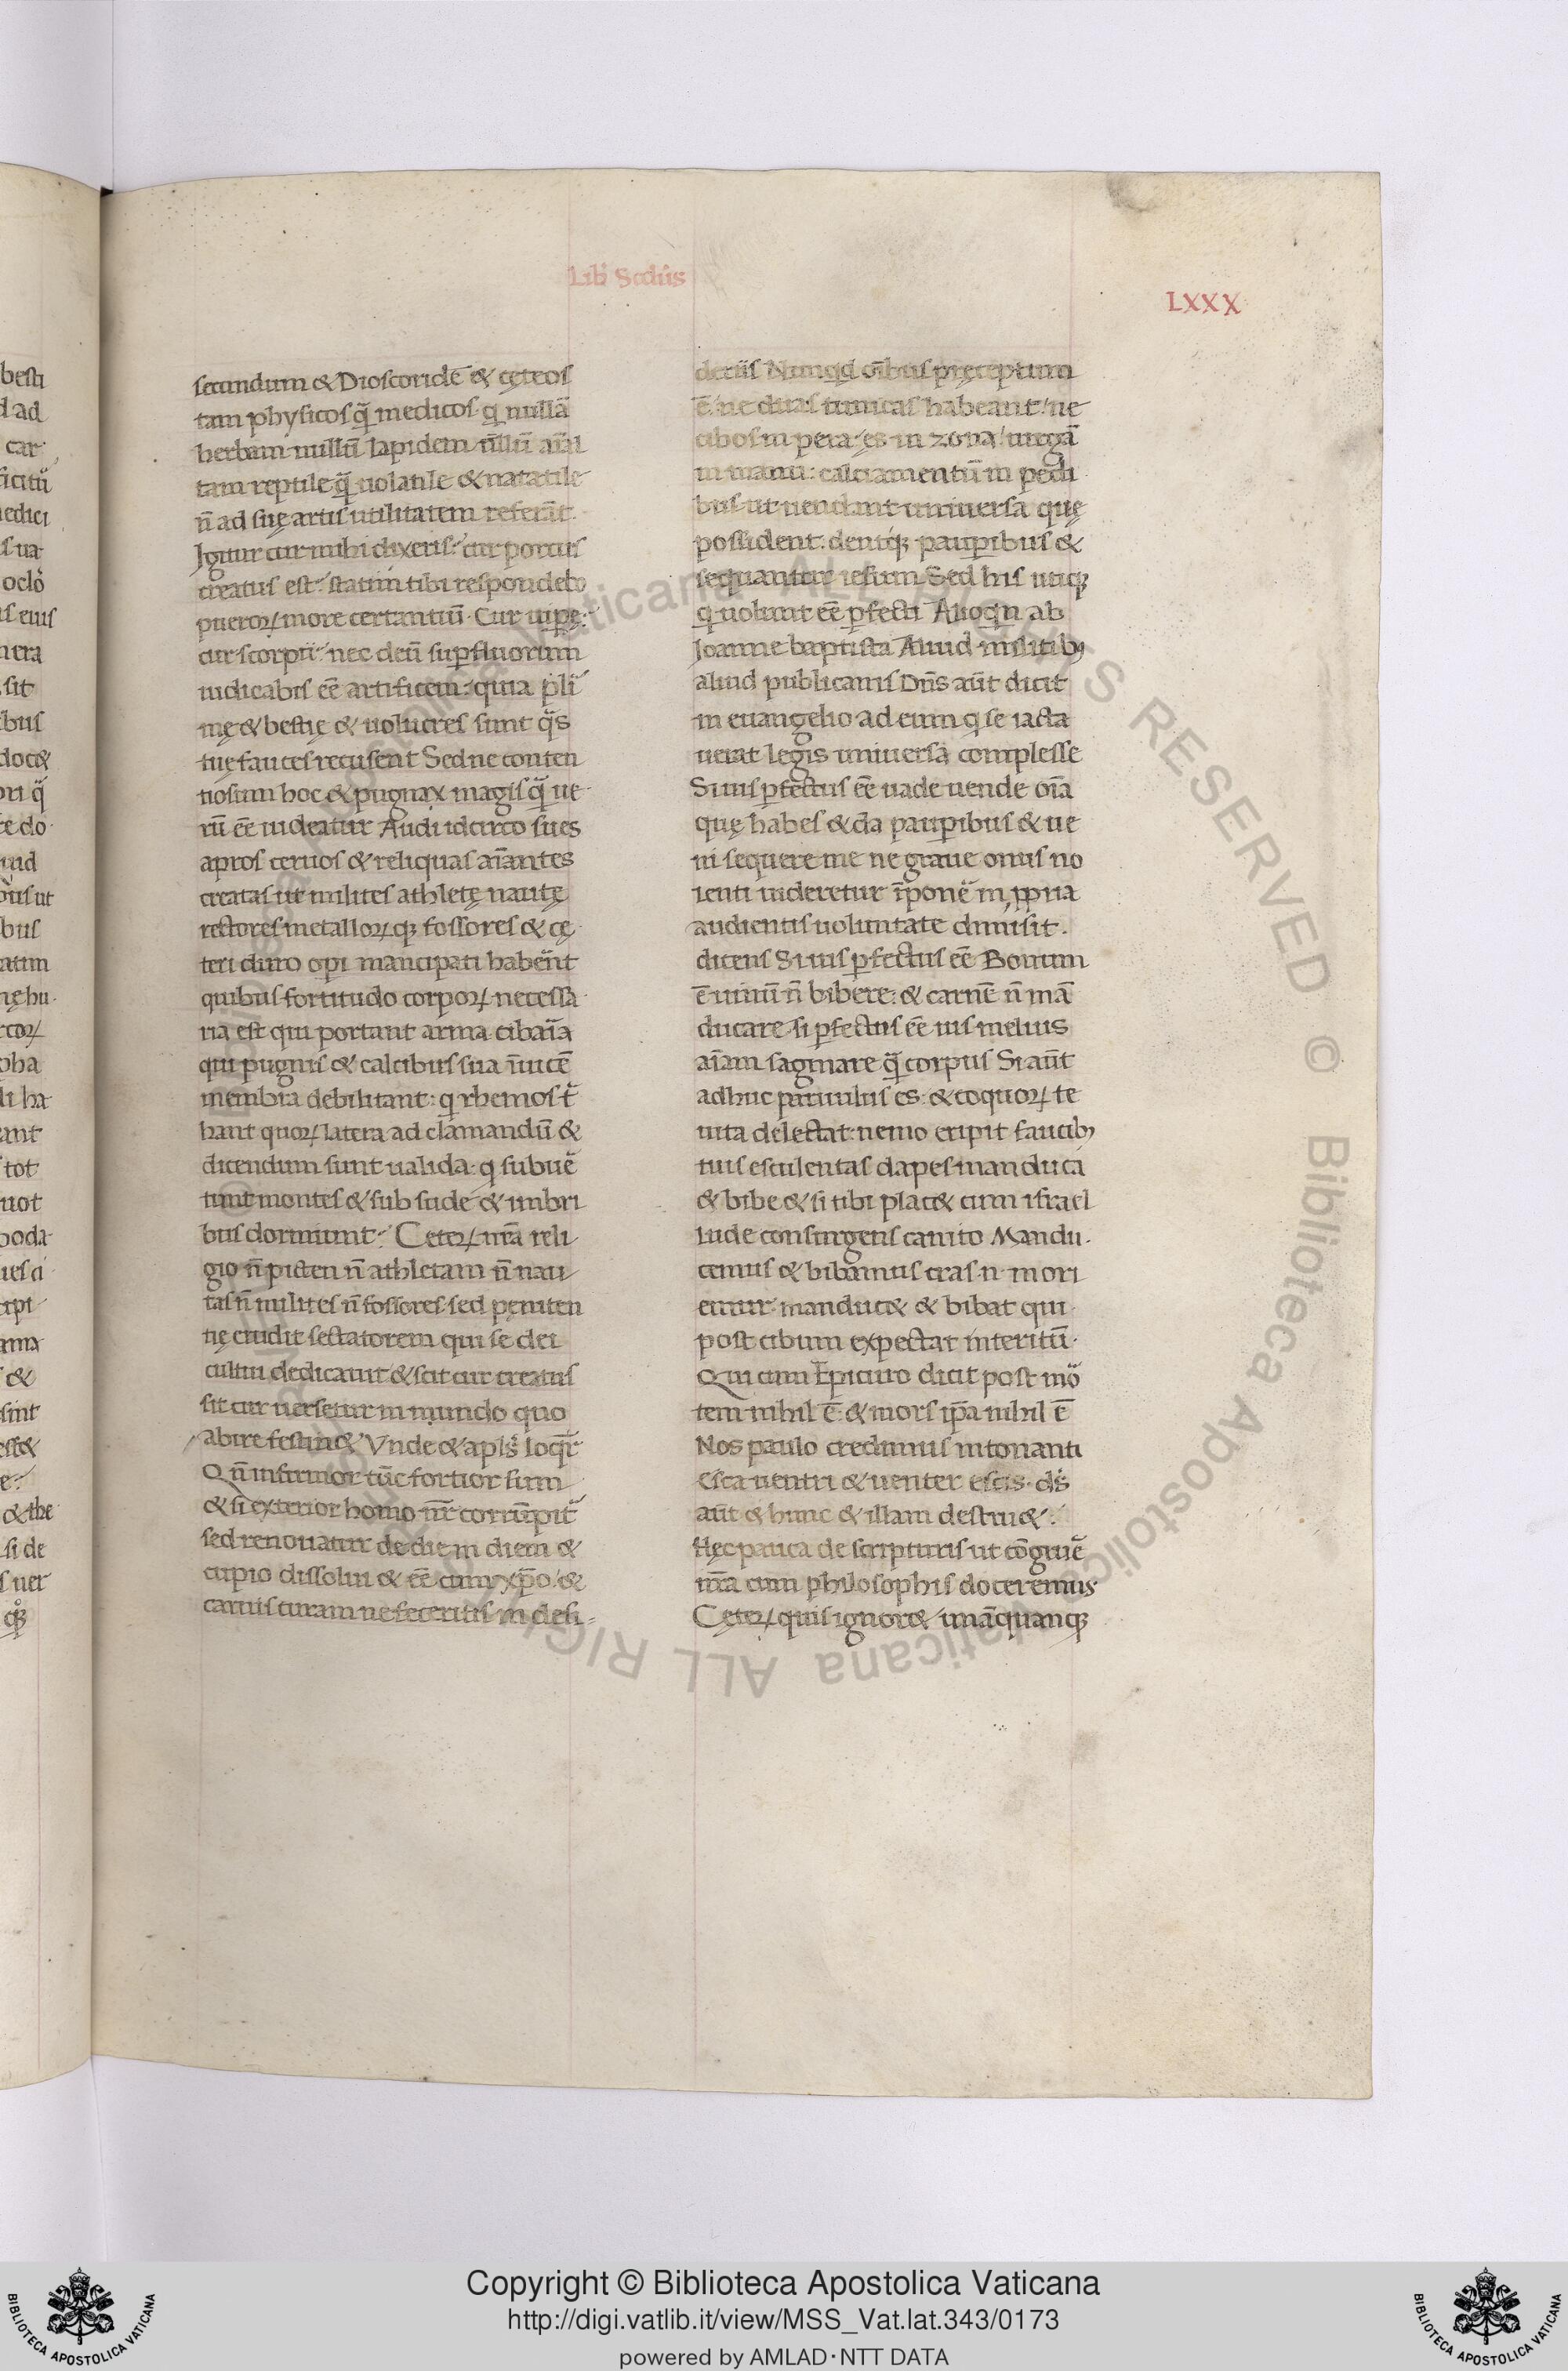 Lib Scdus
LXXX
secundum & Dioscoridē & cęteros
tam physicos q̄ medicos q nullā
herbam nullū lapidem nullū aīal
tam reptile q̄ uolatile & natatile
n̄ ad suę artis utilitatem referāt.
Igitur cur mihi dixeris: cur porcus
creatus est: statim tibi respondebo
pueroꝝ more certantiū. Cur uipę:
cur scorpii: nec deū suꝑfluorum
iudicabis eē artificem: quia pli
mę & bestię & uolucres sunt q̄s
tuę fauces recusent Sed ne conten
tiosum hoc & pugnax magis q̄ ue
rū eē uideatur Audi idcirco sues
apros ceruos & reliquas aīantes
creatas ut milites athletę nautę
rectores metalloꝝ qꝫ fossores & cę
teri duro opi mancipati habent
quibus fortitudo corpoꝝ necessa
ria est qui portant arma cibaria
qui pugnis & calcibus sua īuicē
membra debilitant: q rhemos t̄
hant quoꝝ latera ad clamandū &
dicendum sunt ualida: q subuē
tunt montes & sub sude & imbri
bus dormiunt: Ceteꝝ nr̄a reli
gio n̄ picten n̄ athletam n̄ nau
tas n̄ milites n̄ fossores sed pęniten
tię erudit sectatorem qui se dei
cultui dedicauit & scit cur creatus
sit cur uersetur in mundo quo
abire festin& Vnde & apls loqr̄
Qn̄ infirmor tūc fortior sum
& si exterior homo nr̄ corrūpit
sed renouatur de die in diem &
cupio dissolui & eē cum xp̄o: &
carnis curam ne feceritis in desi=
deriis Nunqd oībus pręceptum
ē: ne duas tunicas habeant: ne
cibos in pera: ęs in zona: uirgā
in manu: calciamentū in pedi
bus ut uendant uniuersa quę
possident: deniqꝫ pauꝑibus &
sequantur iesum Sed his utiqꝫ
q uolunt eē ꝑfecti Alioqn ab
Joanne baptista Aliud militibꝫ
aliud publicanis Dn̄s aūt dicit
in euangelio ad eum q se iacta
uerat legis uniuersa complesse
Si uis ꝑfectus eē uade uende oīa
quę habes & da pauꝑibus & ue
ni sequere me ne graue onus no
lenti uideretur īponē in ꝓpria
audientis uoluntate dimisit.
dicens Si uis ꝑfectus eē Bonum
ē uinū n̄ bibere: & carnē n̄ mā
ducare si ꝑfectus eē uis melius
aīam saginare q̄ corpus Si aūt
adhuc paruulus es: & coquoꝝ te
iura delectat: nemo eripit faucibꝫ
tuis esculentas dapes manduca
& bibe & si tibi plac& cum israel
lude consurgens canito Mandu.
cemus & bibamus cras n. mori
emur manduc& & bibat qui
post cibum expectat interitū.
Qui cum Epicuro dicit post mo
tem nihil ē: & mors ipa nihil ē
Nos paulo credimus intonanti
Esca uentri & uenter escis. ds
aūt & hunc & illam destru&.
Hęc pauca de scripturis ut cōgruē
nr̄a cum philosophis doceremus
Ceteꝝ quis ignor& unāquanqꝫ
Copyright © Biblioteca Apostolica Vaticana
http://digi.vatlib.it/view/MSS_Vat.lat.343/0173
powered by AMLAD·NTT DATA